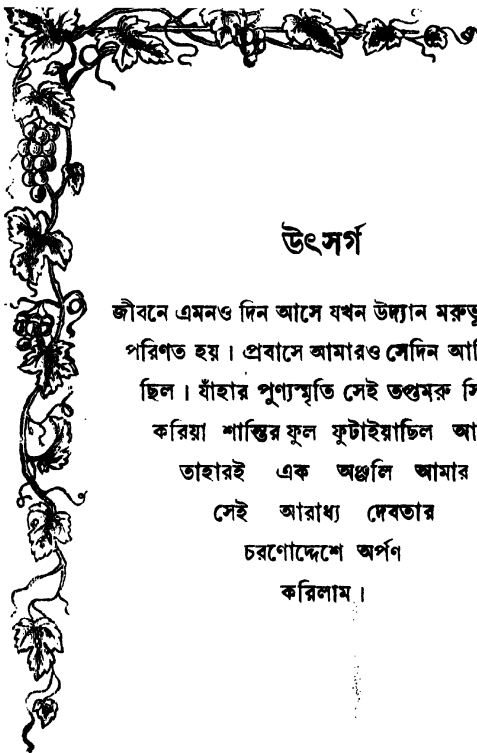 উৎসর্গ
জীবনে এমনও দিন আসে যখন উদ্যান
পরিণত হয় । প্রবাসে আমারও সেদিন
ছিল । যাঁহার পুণ্যস্মৃতি সেই তপ্তমরু
করিয়া শান্তির ফুল ফুটাইয়াছিল
তাহারই এক অঞ্জলি আমার
সেই আরাধ্য দেবতার
চরণোদ্দেশে অর্পণ
করিলাম ।